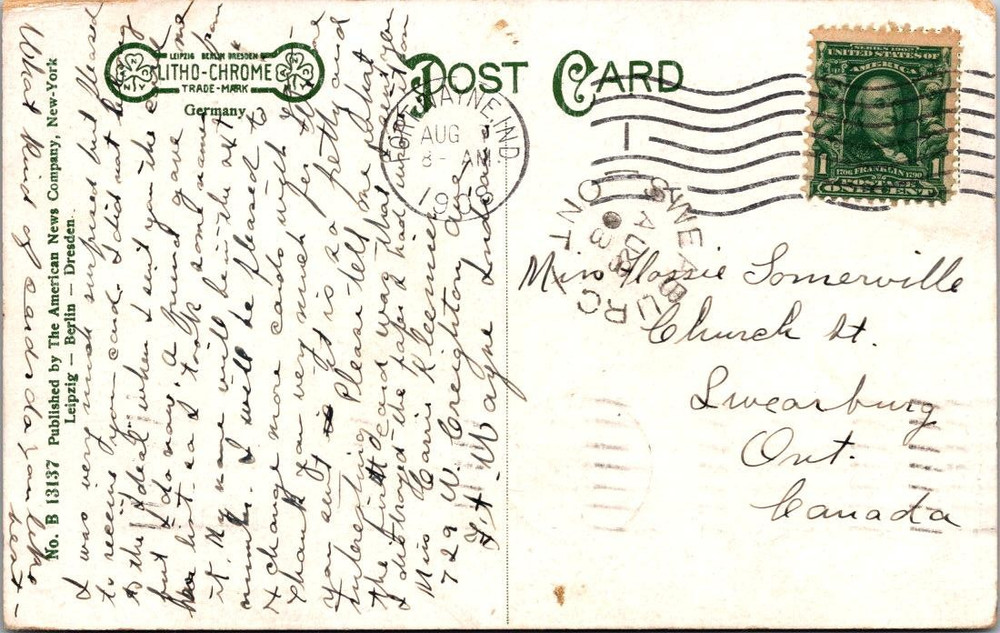 LEIPZIG BERLIN DRESDEN
LITHO-CHROME
TRADE-MARK
Germany
POST CARD
SERIES 1902
UNITED STATES OF
AMERICA
1 1
1706 FRANKLIN 1790
POSTAGE
ONE CENT
FORT WAYNE, IND.
AUG
8 - AM
190
SWEABURG
ONT
Miss Flossie Somerville
Church St.
Sweaburg
Ont.
Canada
No. B 13137 Published by The American News Company, New-York
Leipzig — Berlin — Dresden
What kind of cards do you like
best -
I was very much surprised but pleased
to receive your card. I did not belong
to the "Ideal" when I sent you the card
but I do now. A friend gave me
her list so I took some names from
it. My name will be in the next
number. I will be pleased to
exchange more cards with you.
Thank you very much for the one
you sent. It is so pretty and
interesting. Please tell me what
the first card was that I sent you
I destroyed the paper I had names on
Miss Carrie Kleemeier
729 W. Creighton Ave.
Ft. Wayne Indiana